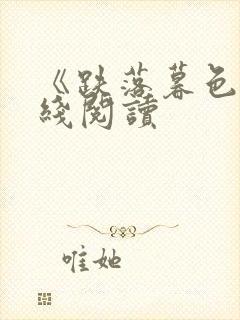 《跌落暮色
綫閱讀
唯她